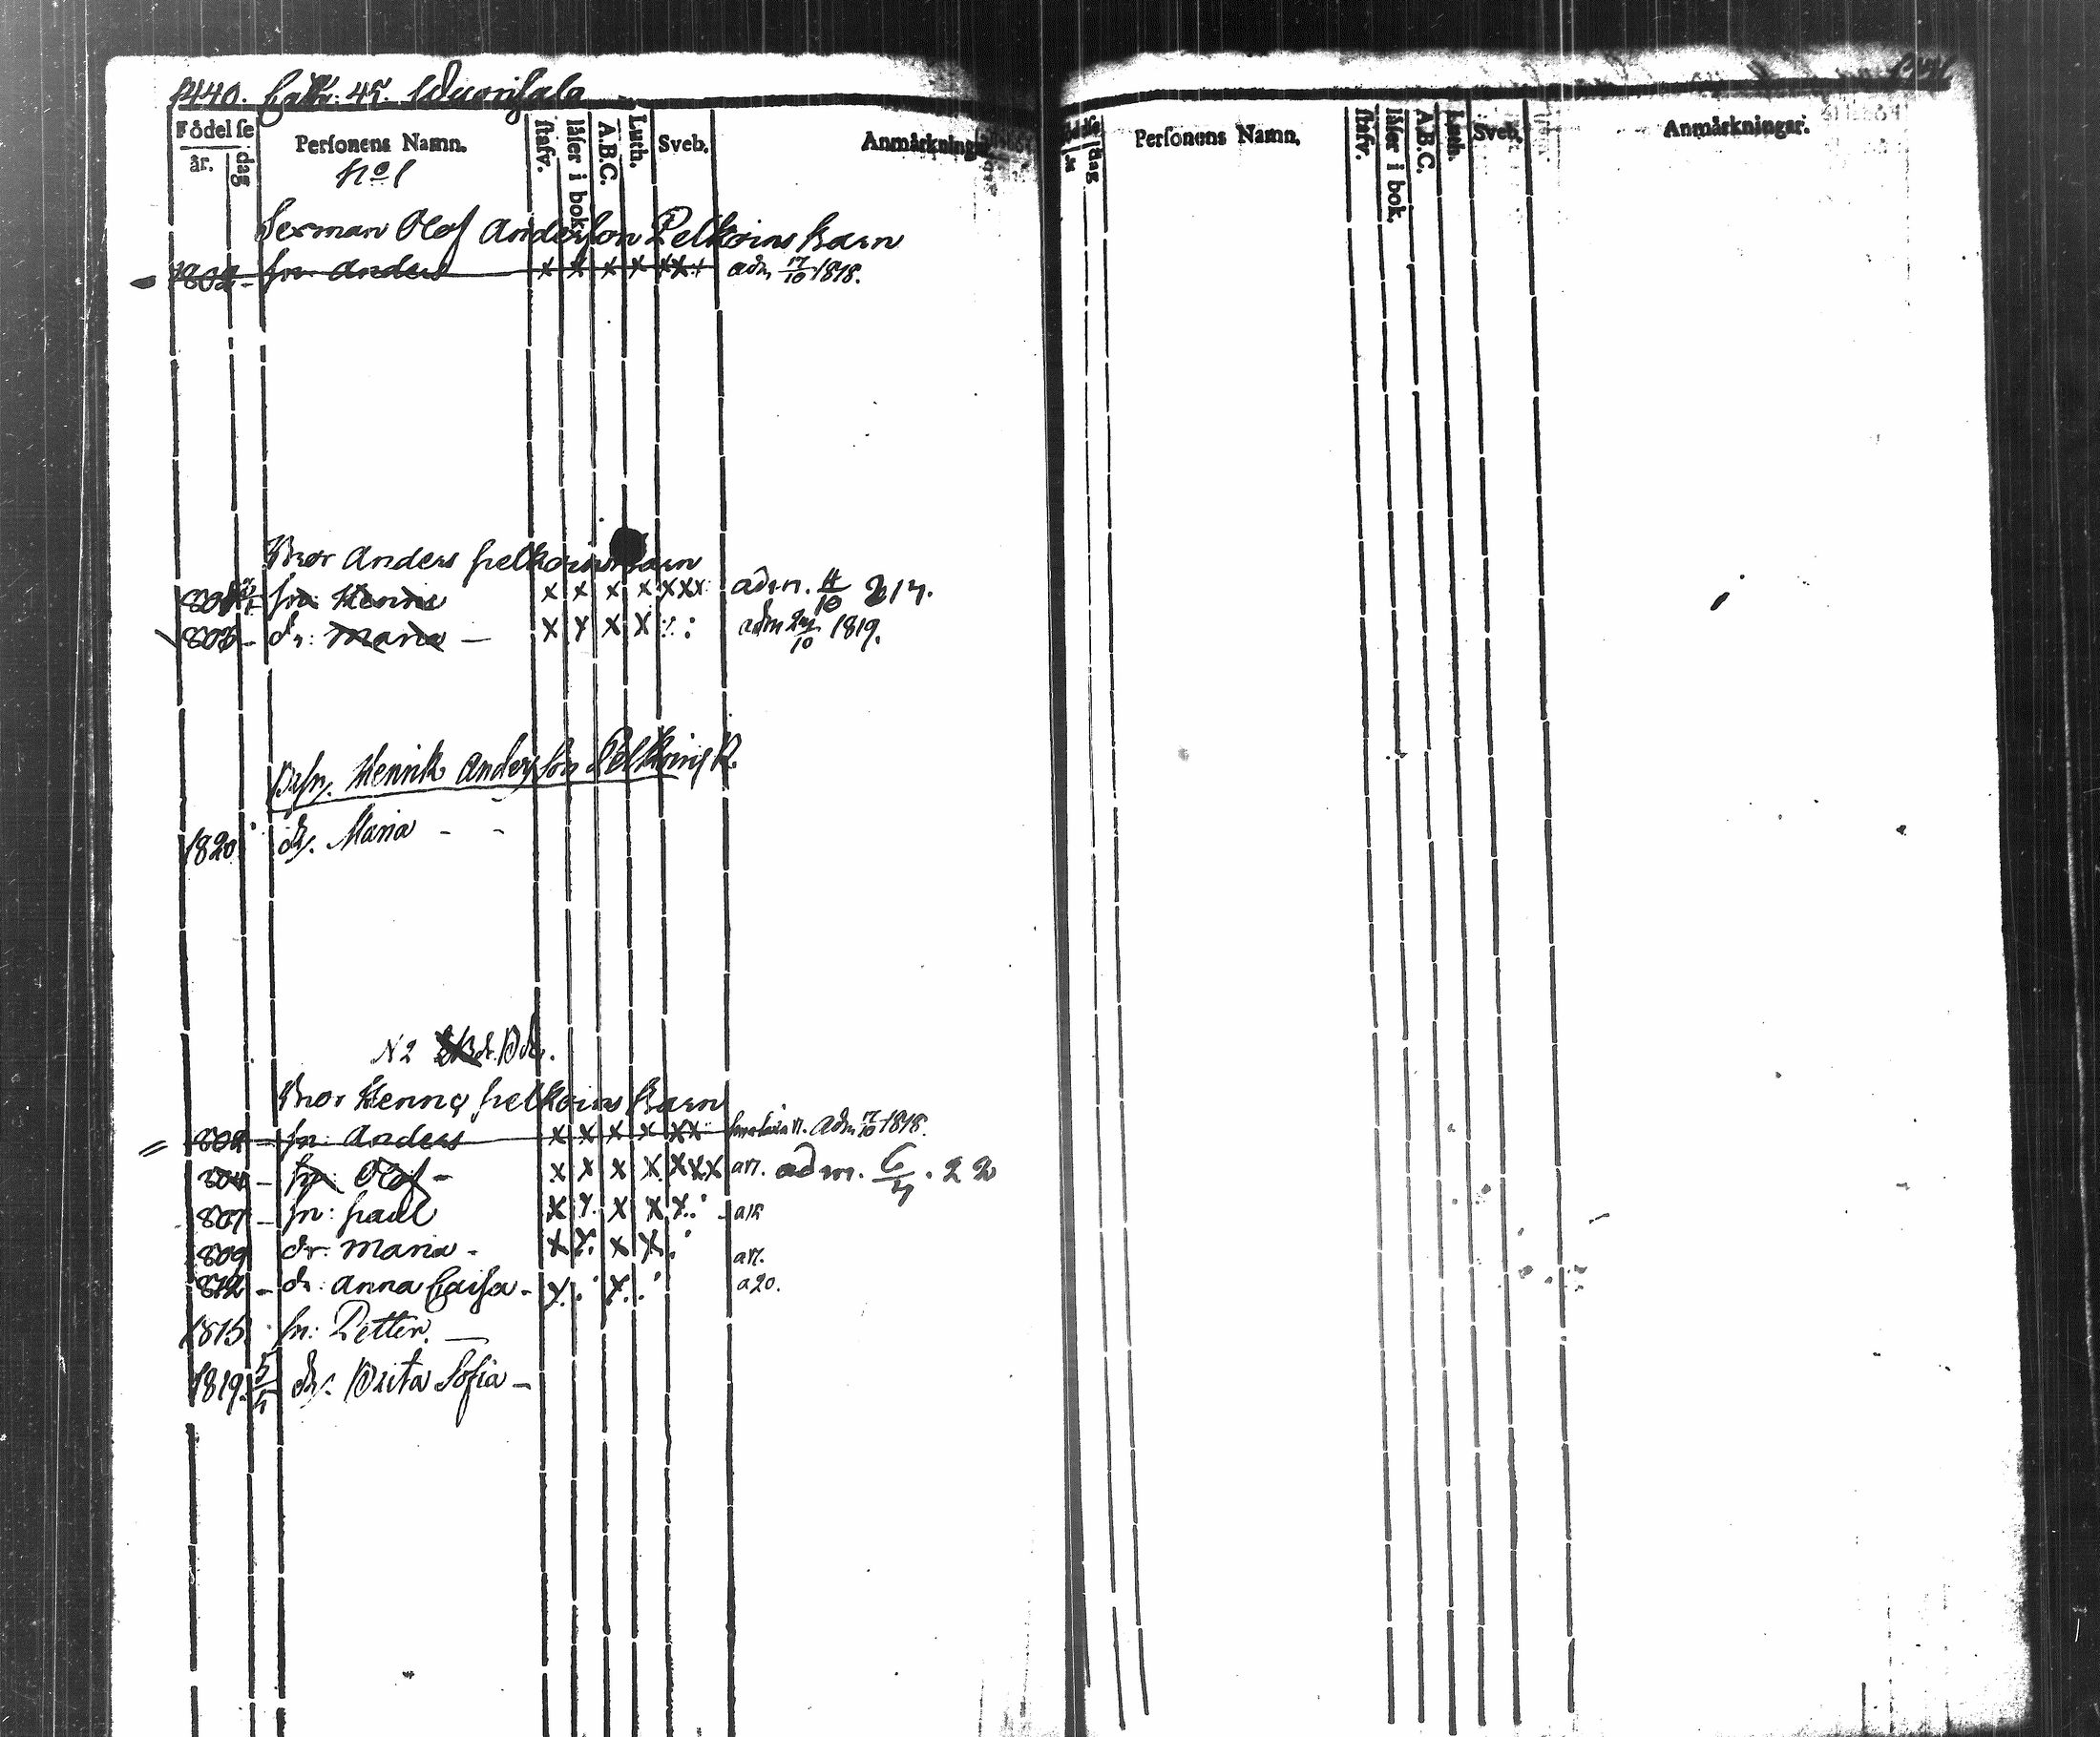 1440. Cathr: 45. Wuorisalo
Födelse
år. dag
Personens Namn.
stafv.
läser i bok.
A.B.C.
Luth.
Sveb.
Anmärkningar
No 1
Sexman Olof Anderson Pelkoins Barn
1802 - sn: Anders x x x x xxx adm 17/10 1818.
Bror Anders pelkoins Barn
sn: Henric x x x x xxx adm. 11/10 217.
1803 - dr: Maria — x x x x adm 24/10 1819.
Brsn. Henrik Andersson Pelkoins B.
1820 dr. Maria - -
N 2
Bror Henric pelkoins Barn
802 - sn: Anders x x x x xx adm 17/10 1818.
804 - sn: Olof - x x x x xxx a17. adm. 6/4. 22
807 - sn: paul x x x x x a15
809 dr: Maria - x x x x a17.
812 - dr: Anna Caisa - x x a20.
1815 sn: Petter. —
1819. 5/4 dr: Brita Sofia -
Födelse
år dag
Personens Namn.
stafv.
läser i bok.
A.B.C.
Luth.
Sveb.
Anmärkningar.